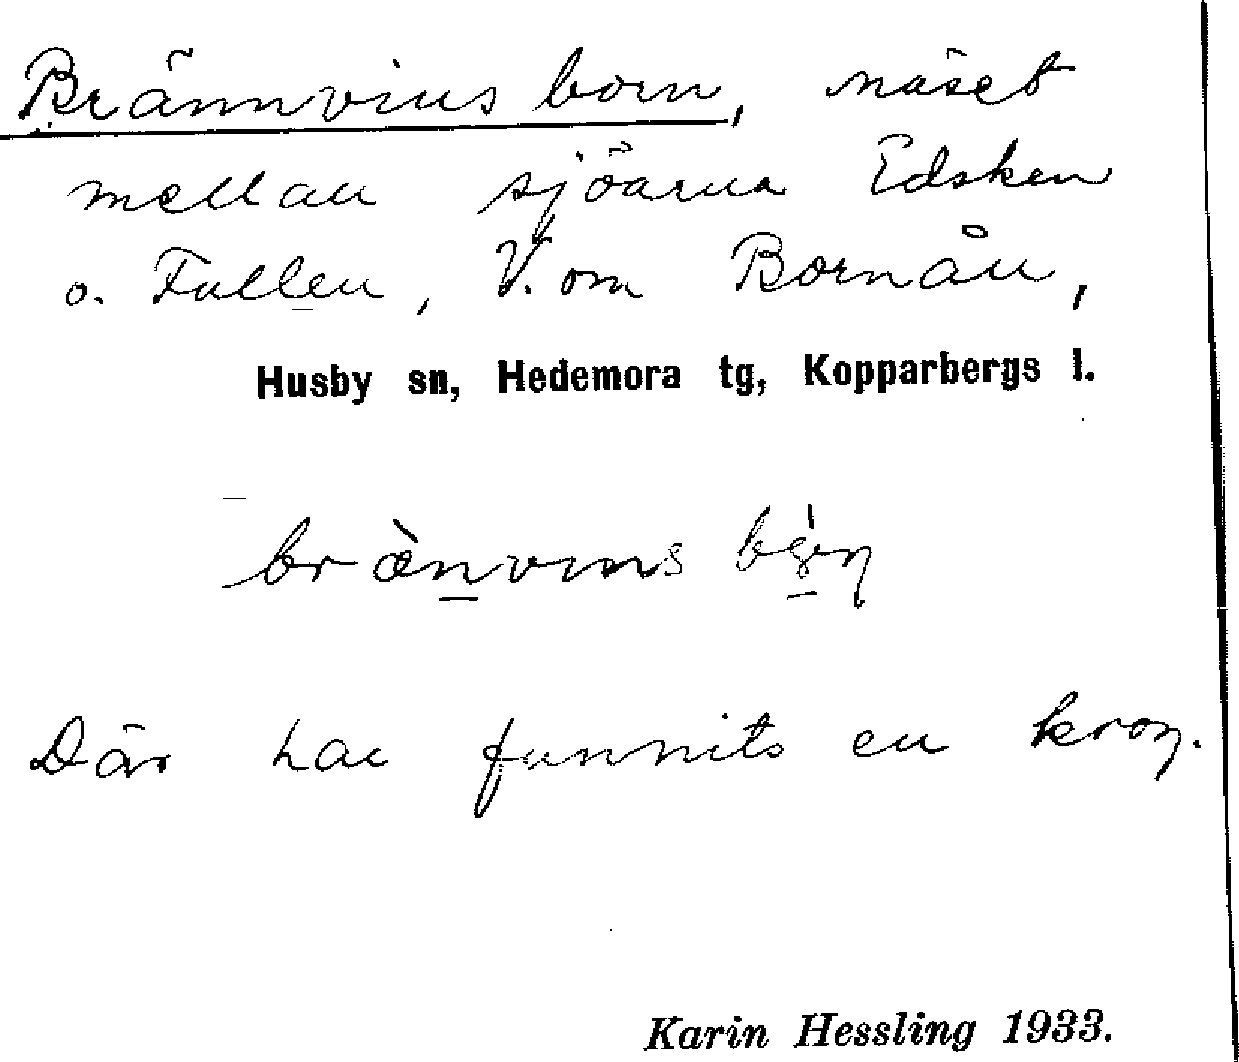 Brännvins born, näset
mellan sjöarna Edsken
o. Fullen, V. om Bornån,
Husby sn, Hedemora tg, Kopparbergs l.
bræ̀nvins
Där har funnits en krog.
Karin Hessling 1933.